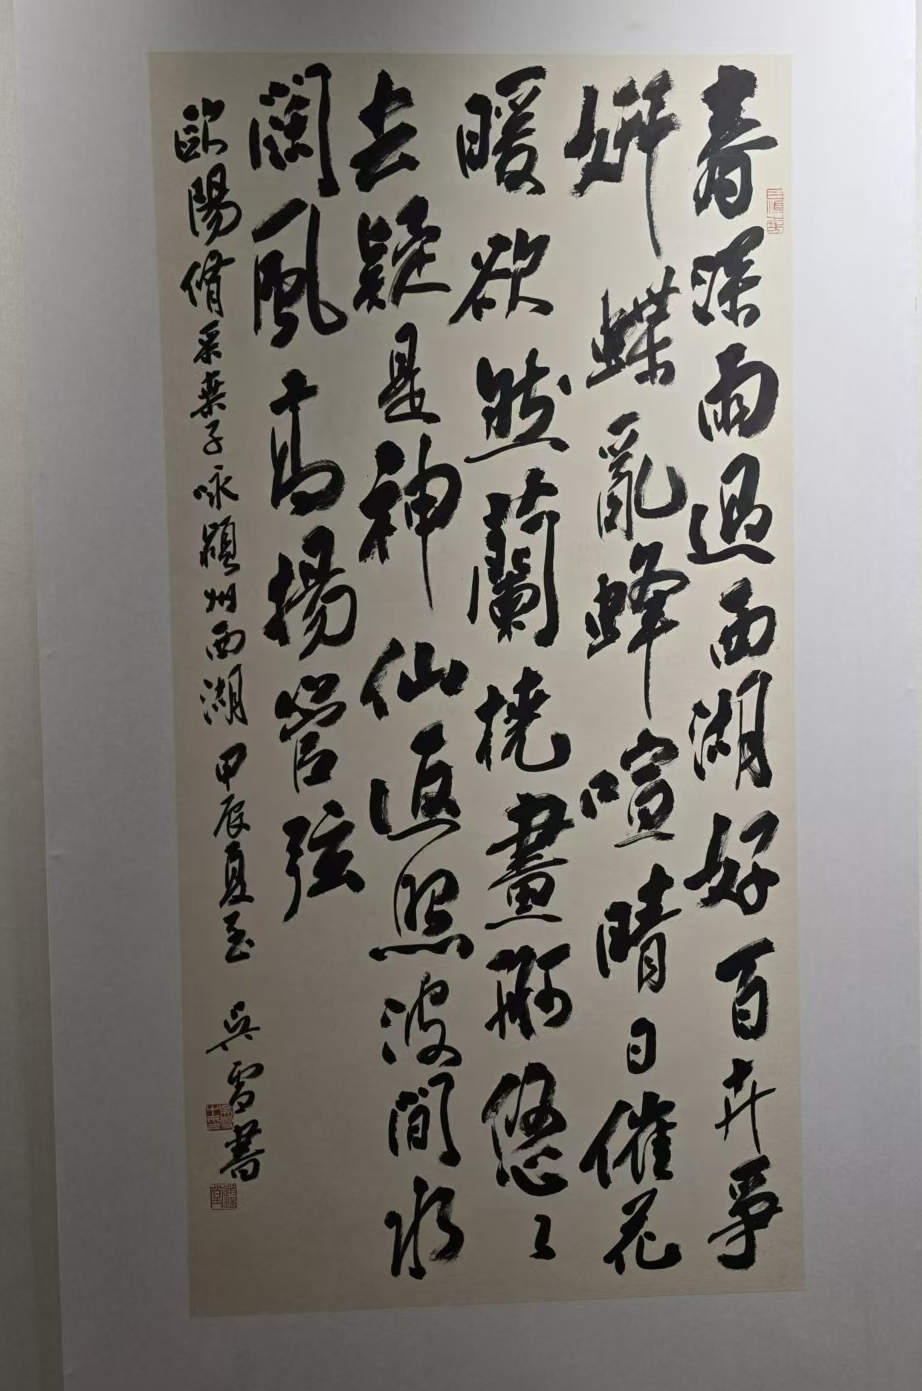 春深雨過西湖好百卉爭
妍蝶亂蜂喧晴日催花
暖欲然蘭橈畫舸悠々
去疑是神仙返照波間水
闊風高揚管弦
歐陽脩采桑子咏潁州西湖 甲辰夏至 吳雪書